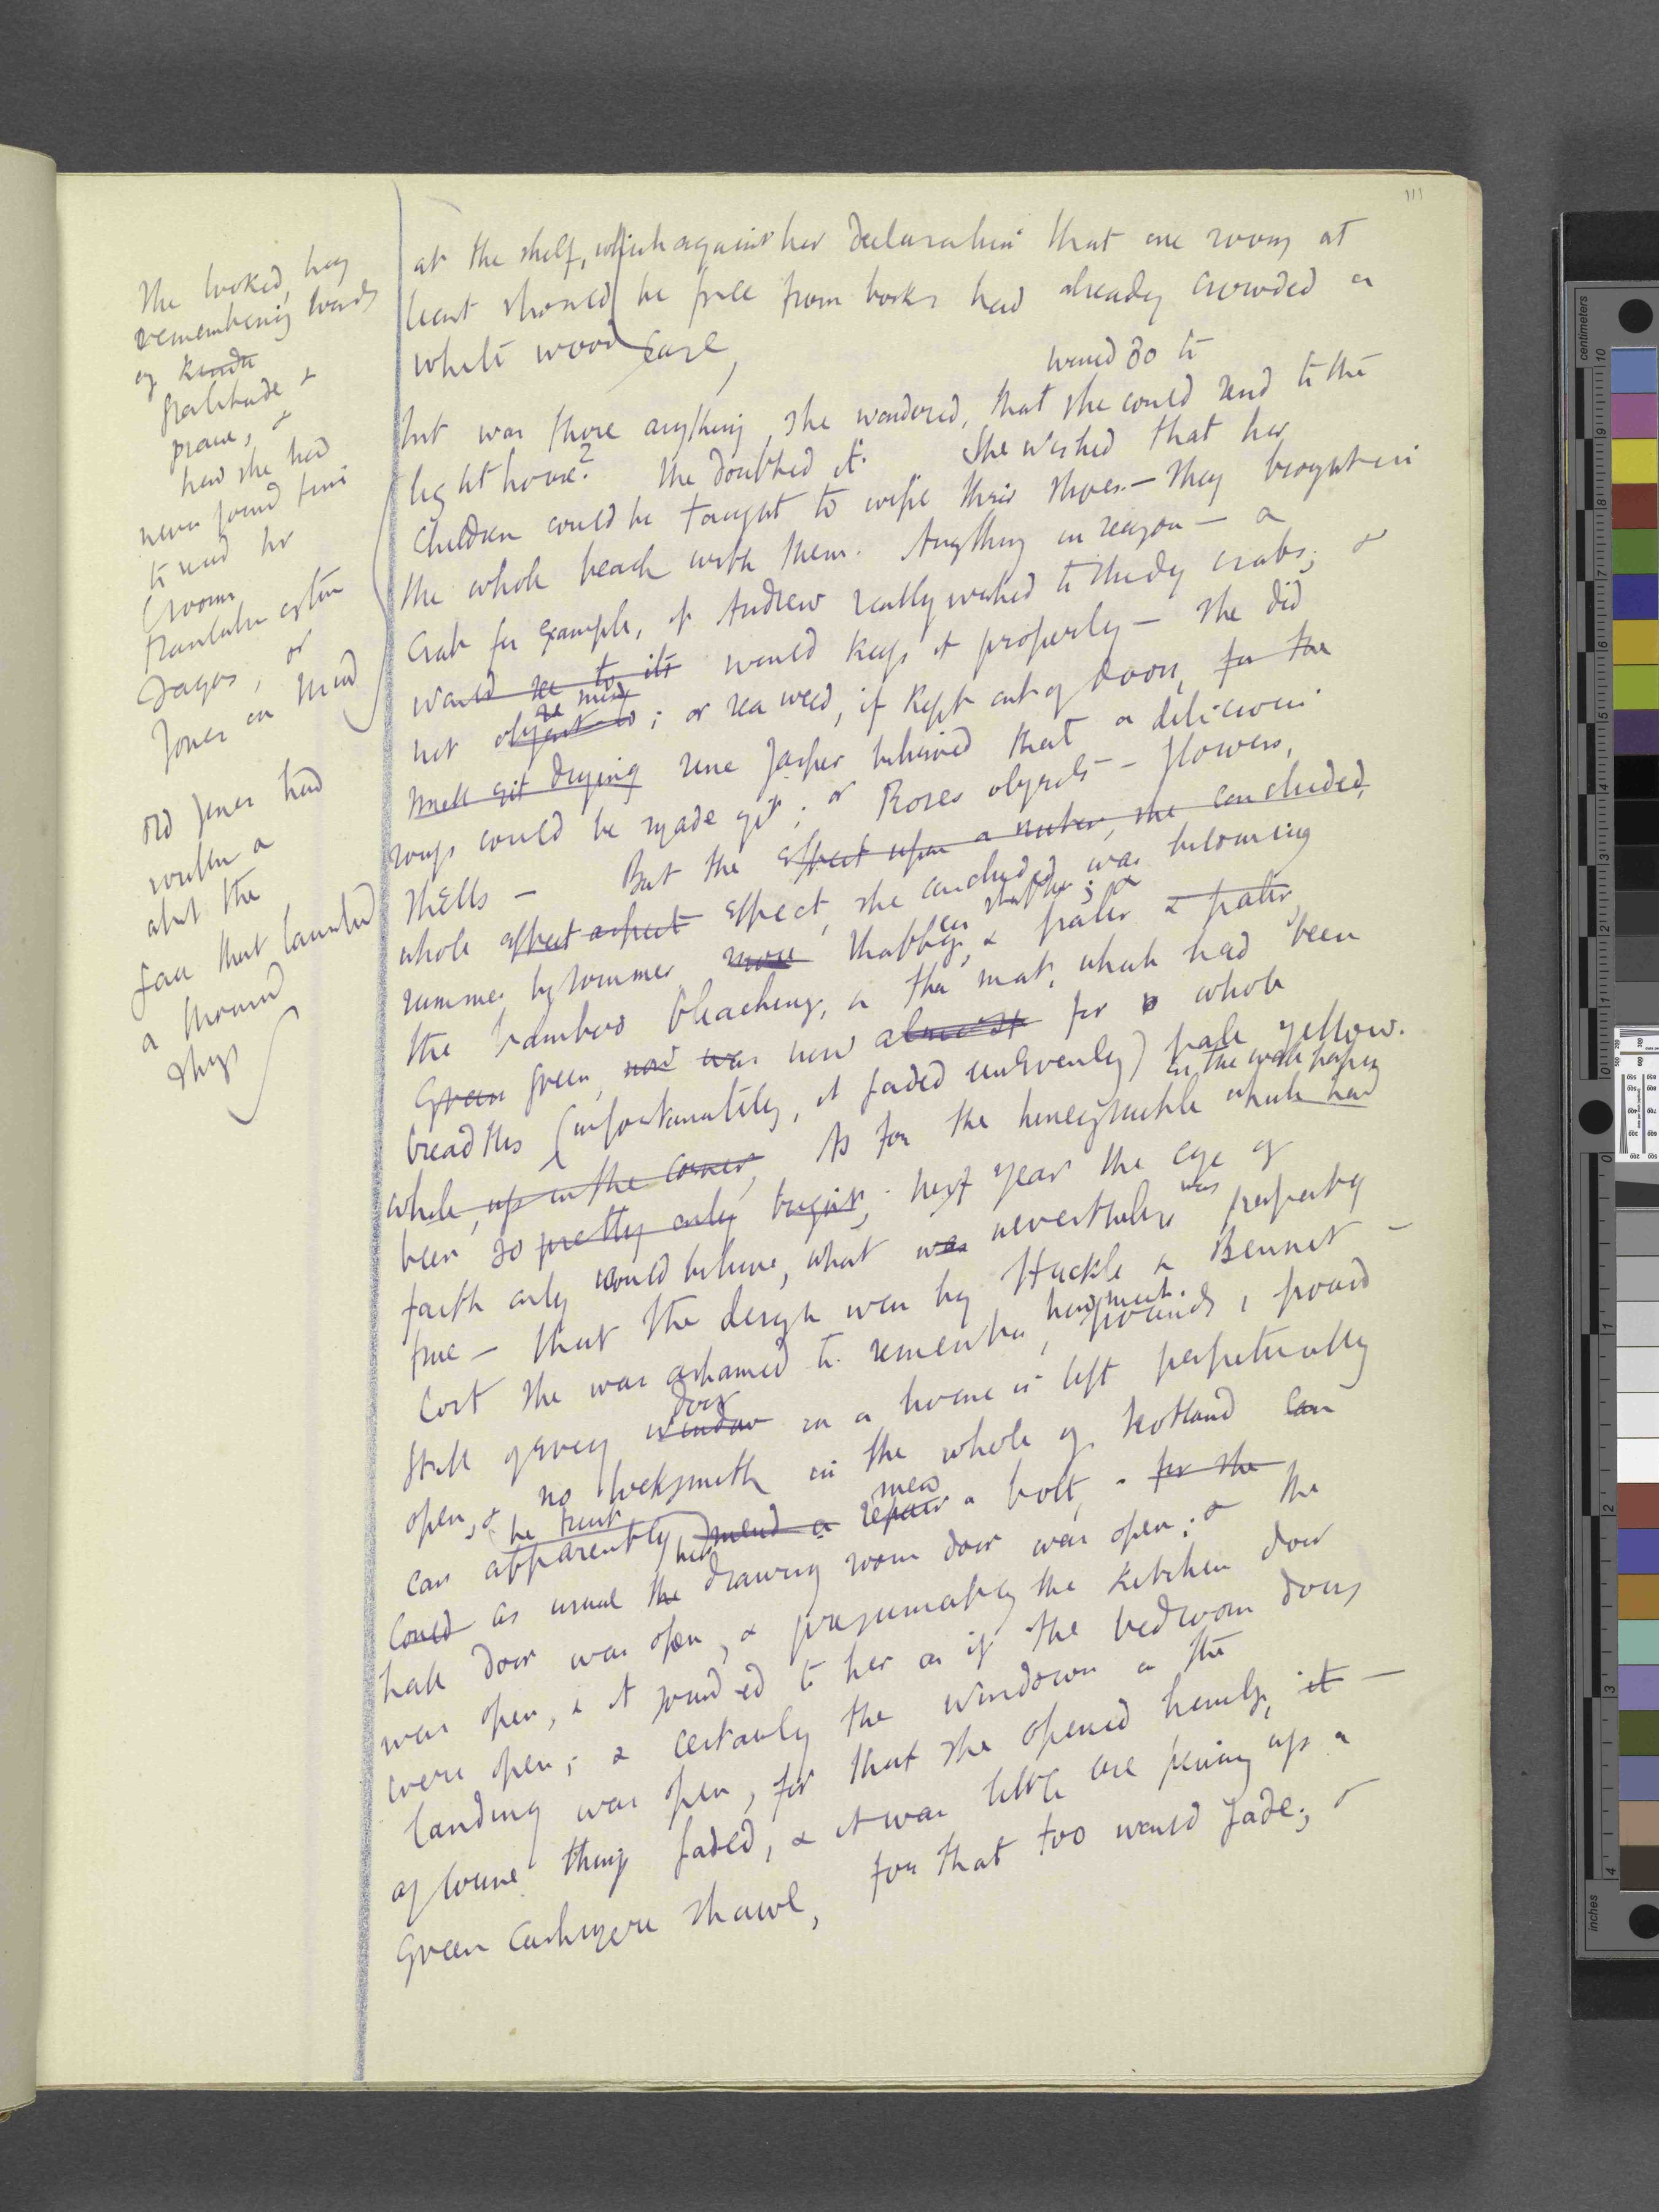 111
at the shelf, which against her declaration that one room at
least should be free from books had already crowded a
white wood case,
would do to
but was there anything, she wondered, that she could send to the
lighthouse? She doubted it. She wished that her
children could be taught to wipe their shoes — they brought in
the whole beach with them. Anything in reason — a
crab for example, if Andrew really wished to study crabs; &
would see to its would keep it properly — she did
mind
not object to; or sea weed, if kept out of doors, for the
smell drying since Jasper believed that a delicious
soup could be made of it; or Roses objects — flowers,
shells — But the effect upon a she concluded,
whole effect aspect effect, she concluded, was becoming
summer by summer more shabbier, & paler & paler
the bamboo bleaching, & the mat, which had been
Green green, now was now almost for a whole
breadths (unfortunately, it faded unevenly) pale yellow.
on the wall paper
while, up in the corner, As for the honeysuckle which had
been so pretty only bright, next year the eye of
faith only would believe, what was nevertheless was perfectly
true — that the design was by Huckle & Bennet —
Cost she was ashamed to remember how much. pounds, pound
door
still if every window in a house is left perpetually
open, & no locksmith in the whole of Scotland can
mend
can apparently mend a repair a bolt, — for she
Could as usual the drawing room door was open; & the
hall door was open, & presumably the kitchen door
was open, & it sounded to her as if the bedroom doors
were open; & certainly the windows on the
landing was open, for that she opened herself, it —
of course things faded, & it was little use pinning up a
green cashmere shawl, for that too would fade; &
She looked, hazy
remembering words
of kinda
gratitude &
praise, &
how she had
never found time
to read her
Croom
translation of the
Sagas, or
Jones on Mind
Old Jones had
written a
abt the
face that launched
a thousand
ships